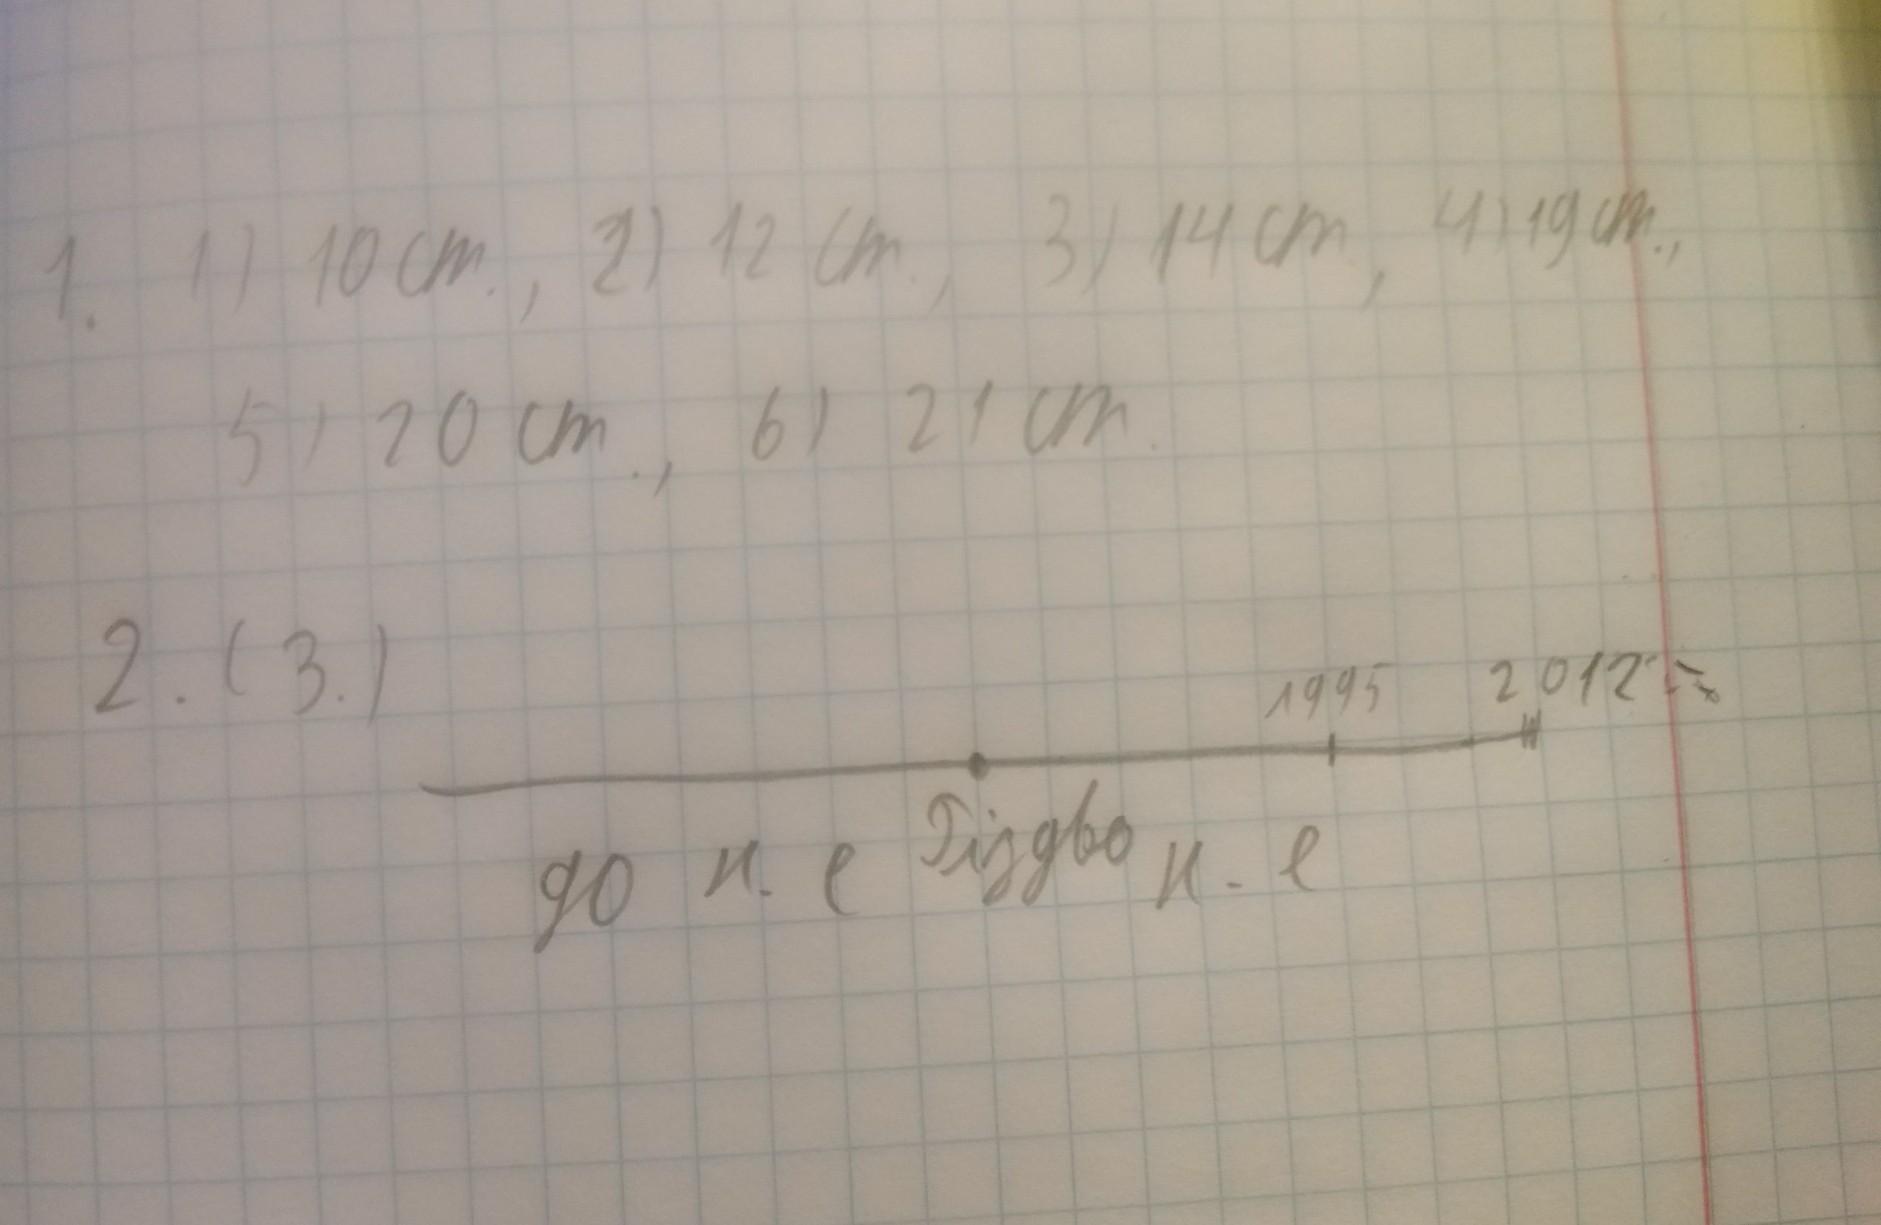 1. 1) 10 ст., 2) 12 ст., 3) 14 ст., 4) 19 ст.,
5) 20 ст., 6) 21 ст.
2. (3.)
1995 2012
до н. е Різдво н. е